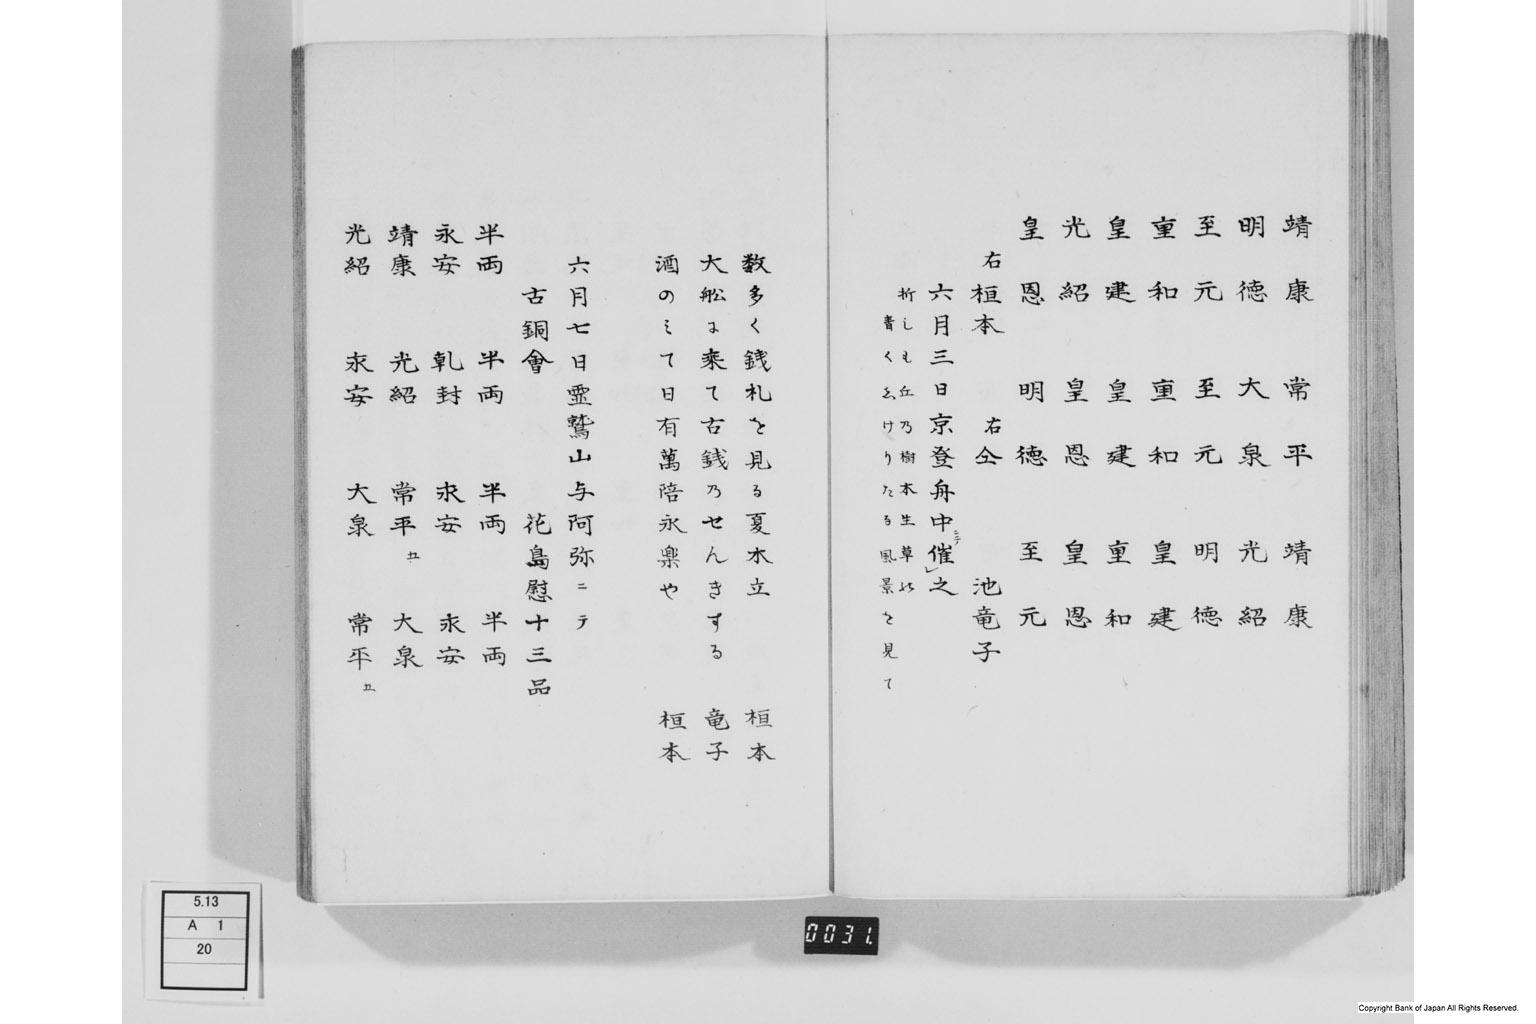 靖康　常平　靖康
明徳　大泉　光紹
至元　至元　明徳
重和　重和　皇建
皇建　皇建　重和
光紹　皇恩　皇恩
皇恩　明徳　至元
右桓本　右仝　池竜子
六月三日京登舟中ニテ催之
折しも丘乃樹木生草の
青くゑけりたる風景を見て
数多く銭札を見る夏木立　桓本
大舩に乗て古銭乃せんきする　竜子
酒のミて日有萬陪永楽や　桓本
六月七日霊鷲山与阿弥ニテ
古銅會　花島慰十三品
半両　半両　半両　半両
永安　乾封　永安　永安
靖康　光紹　常平五　大泉
光紹　永安　大泉　常平五
5.13
A 1
20
0031.
Copyright Bank of Japan All Rights Reserved.